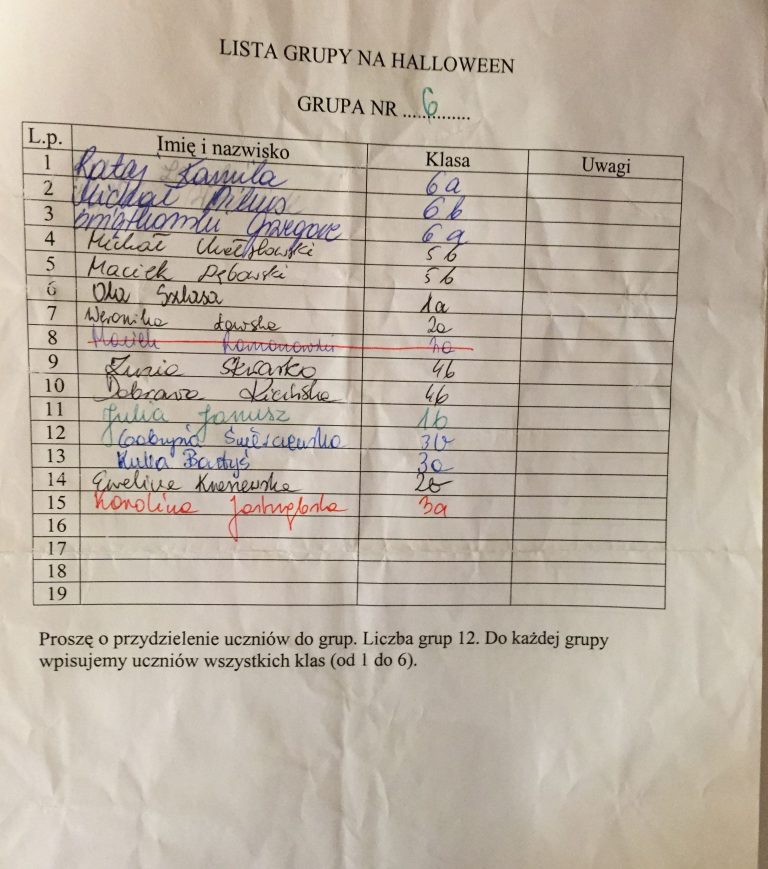 LISTA GRUPY NA HALLOWEEN
GRUPA NR .... 6 ............
L.p. Imię i nazwisko Klasa Uwagi
1 Rataj Kamila 6a
2 Michał 6b
3 6a
4 Michał 5b
5 Maciek Dębowski 5b
6 Ola Szlasa 1a
7 Weronika Ławska 2a
8 Maciek Romanowski 3a
9 Zuzia Skwarko 4b
10 Dobrawa Kicińska 4b
11 Julia Janusz 1b
12 Gabrysia 3b
13 Kuba Bartyś 3a
14 Ewelina 2b
15 Karolina Jastrzębska 3a
16
17
18
19
Proszę o przydzielenie uczniów do grup. Liczba grup 12. Do każdej grupy
wpisujemy uczniów wszystkich klas (od 1 do 6).